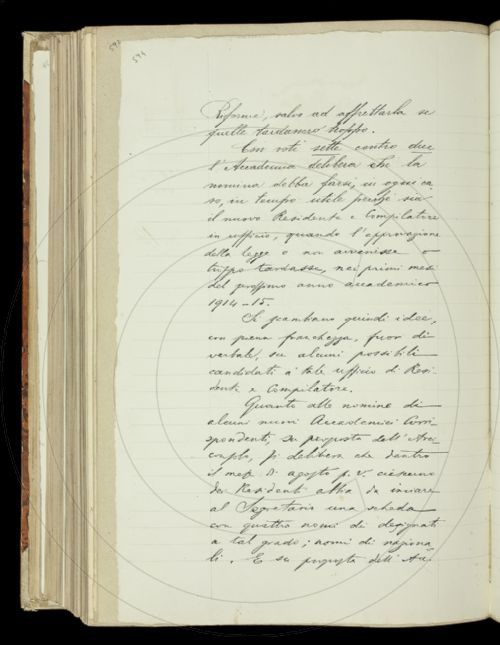 594
Riforme, salvo ad affrettarla se
quelle tardassero troppo.
Con voti sette contro due
l'Accademia delibera che la
nomina debba farsi, in ogni ca-
so, in tempo utile perché sia
il nuovo Residente e Compilatore
in ufficio, quando l'approvazione
della legge o non avvenisse o
troppo tardasse, nei primi mesi
del prossimo anno accademico
1914-15.
Si scambiano quindi idee,
con piena franchezza, fuor di
verbale, su alcuni possibili
candidati a tale ufficio di Resi-
dente e Compilatore.
Quanto alle nomine di
alcuni nuovi Accademici Corri-
spondenti, su proposta dell'Arci-
consolo, si delibera che dentro
il mese di agosto p. v. ciascuno
dei Residenti abbia da inviare
al Segretario una scheda
con quattro nomi di designati
a tal grado; nomi di naziona-
li. E su proposta dell'